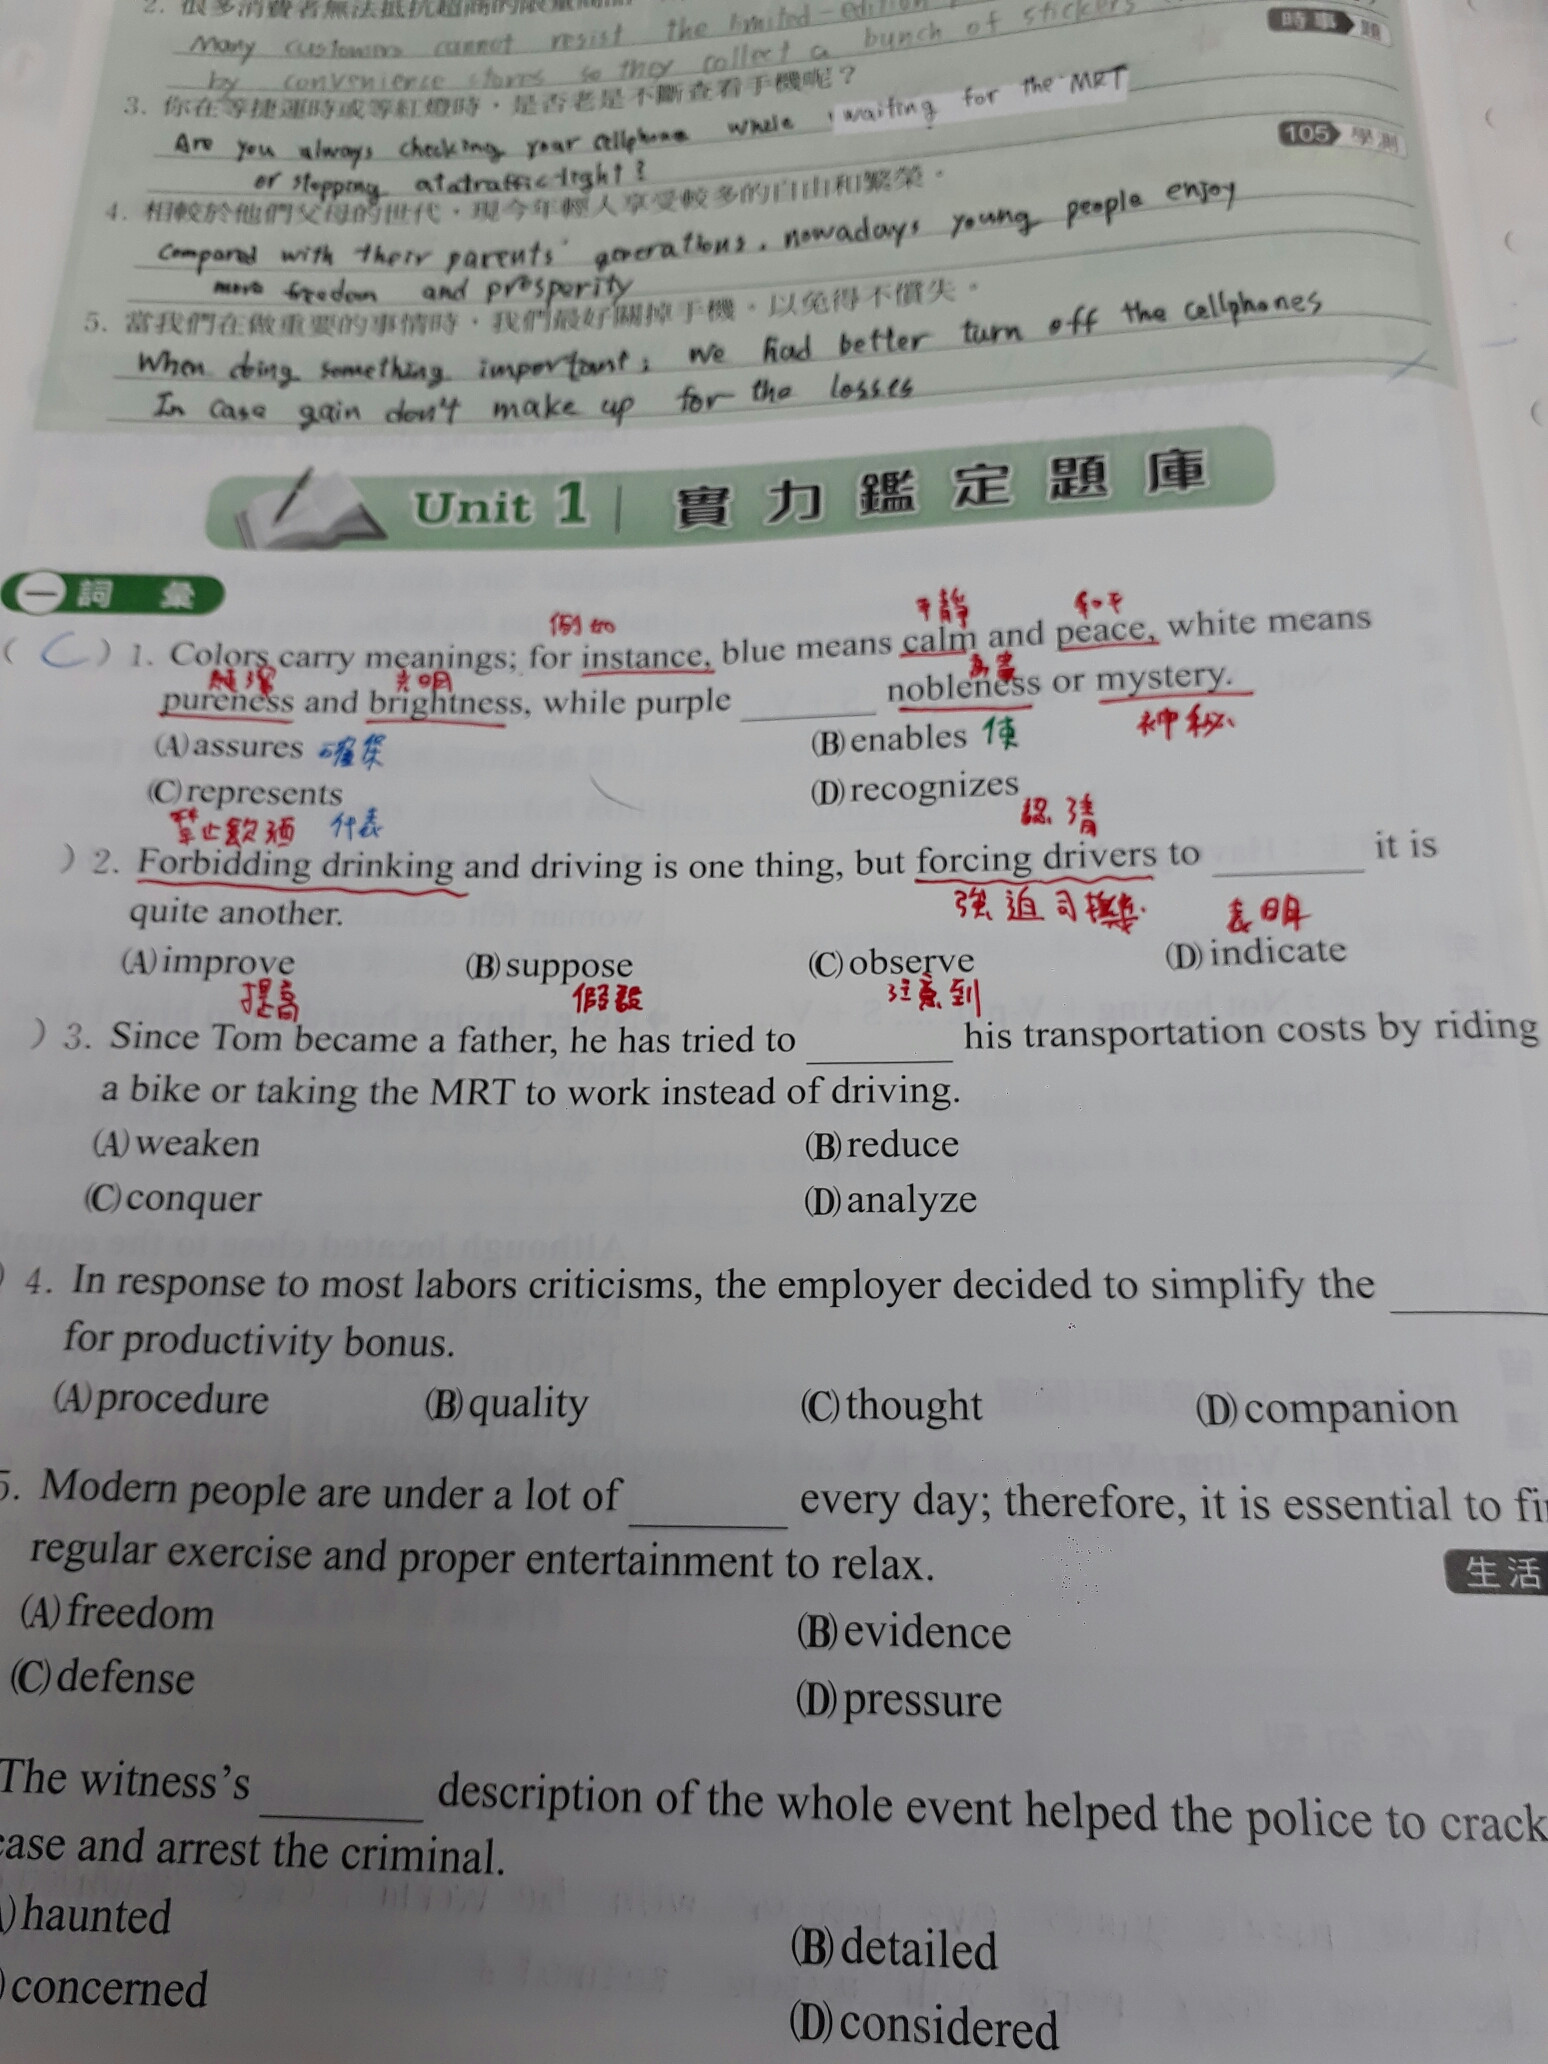 2. 很多消費者無法抵抗超商的限量
Many customers cannot resist the limited-edition
by convenience stores so they collect a bunch of stickers
時事題
3. 你在等捷運時或等紅燈時，是否老是不斷查看手機呢？
Are you always checking your cellphone while waiting for the MRT
or stopping at a traffic light?
105 學測
4. 相較於他們父母的世代，現今年輕人享受較多的自由和繁榮。
Compared with their parents' generations, nowadays young people enjoy
more freedom and prosperity
5. 當我們在做重要的事情時，我們最好關掉手機，以免得不償失。
When doing something important, we had better turn off the cellphones
In case gain don't make up for the losses
Unit 1 實力鑑定題庫
一 詞彙
例如 平靜 和平
( C ) 1. Colors carry meanings; for instance, blue means calm and peace, white means
純潔 光明 高貴
pureness and brightness, while purple ______ nobleness or mystery.
神秘
(A) assures 確保 (B) enables 使
(C) represents (D) recognizes
禁止飲酒 代表 認清
) 2. Forbidding drinking and driving is one thing, but forcing drivers to ______ it is
強迫司機
quite another.
表明
(A) improve (B) suppose (C) observe (D) indicate
提高 假設 注意到
) 3. Since Tom became a father, he has tried to ______ his transportation costs by riding
a bike or taking the MRT to work instead of driving.
(A) weaken (B) reduce
(C) conquer (D) analyze
) 4. In response to most labors criticisms, the employer decided to simplify the ______
for productivity bonus.
(A) procedure (B) quality (C) thought (D) companion
5. Modern people are under a lot of ______ every day; therefore, it is essential to fi
regular exercise and proper entertainment to relax.
生活
(A) freedom (B) evidence
(C) defense (D) pressure
The witness's ______ description of the whole event helped the police to crack
case and arrest the criminal.
) haunted (B) detailed
) concerned (D) considered